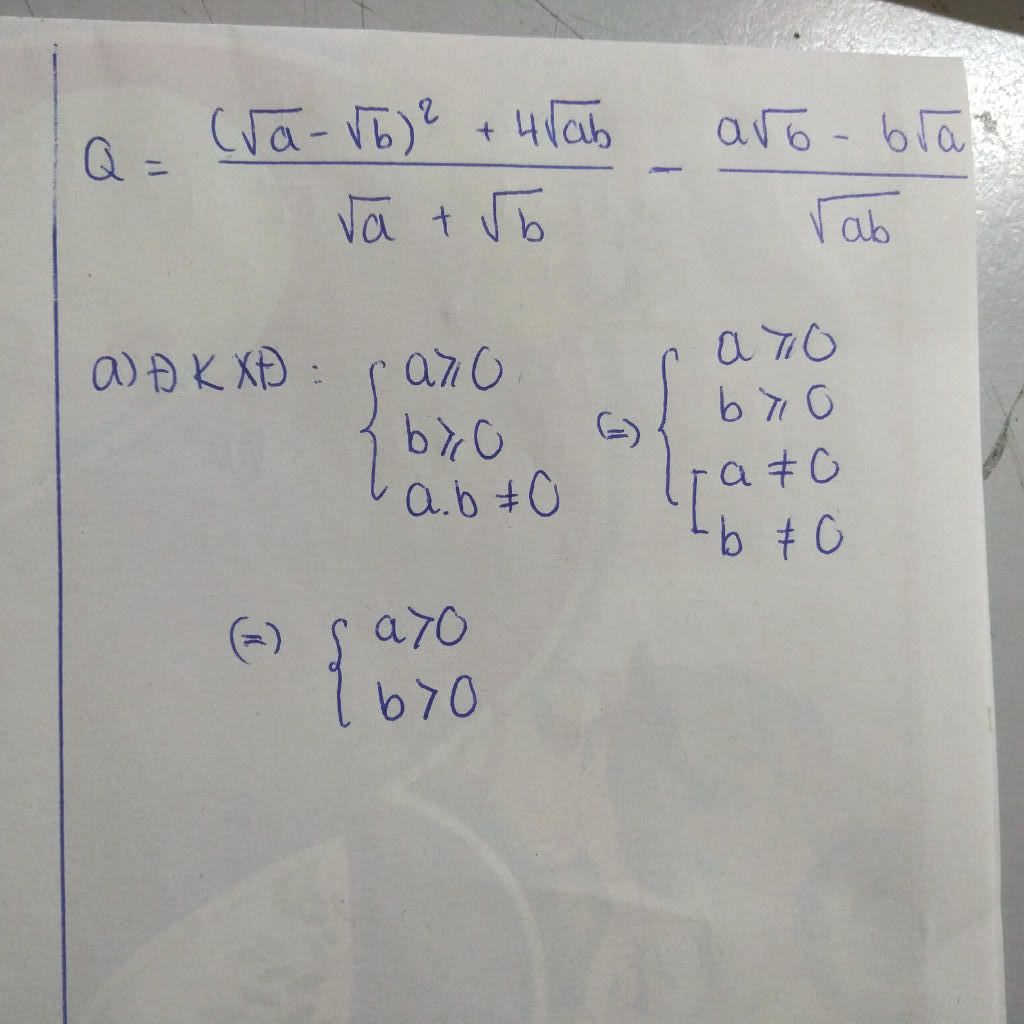 Q = ((√a - √b)² + 4√ab)/(√a + √b) - (a√b - b√a)/√ab
a) ĐKXĐ: { a ⩾ 0 (=) { a ⩾ 0
b ⩾ 0 b ⩾ 0
a.b ≠ 0 [ a ≠ 0
b ≠ 0
(=) { a > 0
b > 0